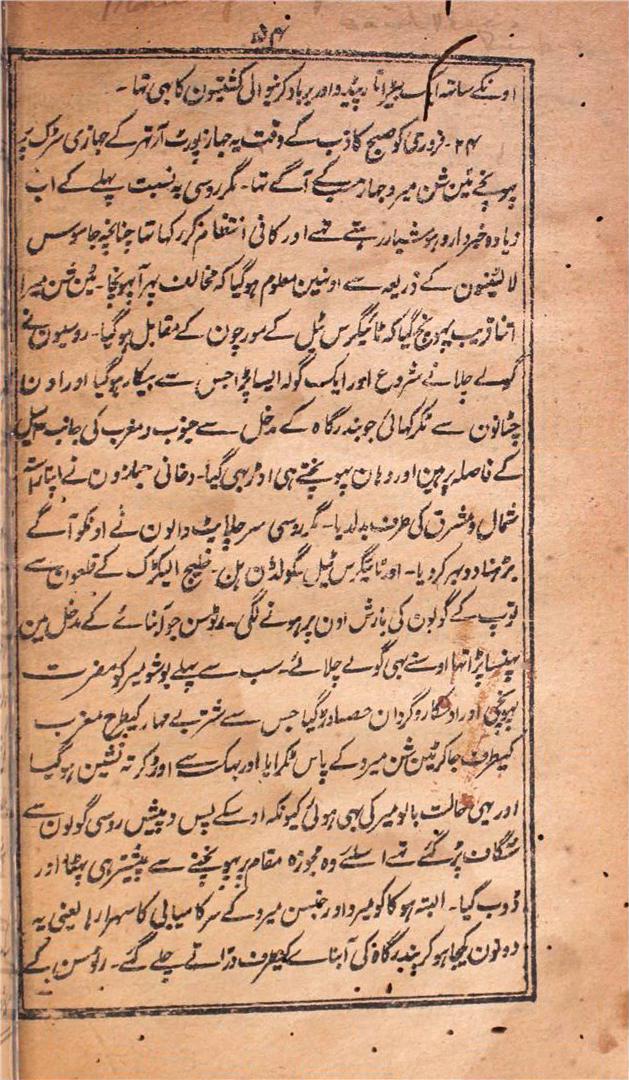 ۵۴
اونکے ساتھ ایک بیڑا تارپیڈو اور برباد کرنیوالی کشتیون کا بہی تہا۔
۲۴۔ فروری کو صبح کاذب کے وقت یہ جہاز پورٹ آرتہر کے جہازی سڑک پر
پہونچے ٹین شن میرو جہاز سب کے آگے تہا۔ مگر روسی بہ نسبت پہلے کے اب
زیادہ خبردار و ہوشیار رہتے تہے اور کافی انتظام کر رکہا تہا چنانچہ جاسوس
لالٹینون کے ذریعہ سے اونہین معلوم ہوگیا کہ مخالف پہر آپہونچا۔ ٹین شن میرا
اتنا قریب پہونچ گیا کہ ٹائیگرس ٹیل کے مورچون کے مقابل ہوگیا۔ روسیون نے
گولے چلانے شروع اور ایک گولہ ایسا پڑا جس سے بیکار ہوگیا اور اون
چٹانون سے ٹکر کہائی جو بندرگاہ کے مدخل سے جنوب و مغرب کی جانب ۳ میل
کے فاصلہ پر ہین اور وہان پہونچتے ہی اوڑ بہی گیا۔ دخانی جہازون نے اپنا راستہ
شمال و مشرق کی طرف بدلدیا۔ مگر روسی سرچلایٹ والون نے اونکو آگے
بڑہنا دوبہر کردیا۔ اور ٹائیگرس ٹیل گولڈن ہل۔ خلیج الیکٹرک کے قلعون سے
توپ کے گولون کی بارش اون پر ہونے لگی۔ رٹوسن جو آبنائے کے مدخل مین
پہنسا پڑا تہا اوسنے بہی گولے چلائے۔ سب سے پہلے بوشو میرو کو مضرت
پہونچی اور اوسکا روگردان حصہ اوڑ گیا جس سے شتر بے مہار کیطرح مغرب
کیطرف جاکر ٹین شن میرو کے پاس ٹکرایا اور بہک سے اوڑ کر تہ نشین ہوگیا
اور یہی حالت بالو میر کی بہی ہوئی کیونکہ اوسکے پس و پیش روسی گولون سے
شگاف پڑ گئے تہے اسلئے وہ مجوزہ مقام پر پہونچنے سے پیشتر ہی پہٹا اور
ڈوب گیا۔ البتہ ہوکاکو میرو اور جنسن میرو کے سر کامیابی کا سہرا رہا یعنی یہ
دونون یکجا ہوکر بندرگاہ کی آبنائے کیطرف دڑاتے چلے گئے۔ رٹوسن کے